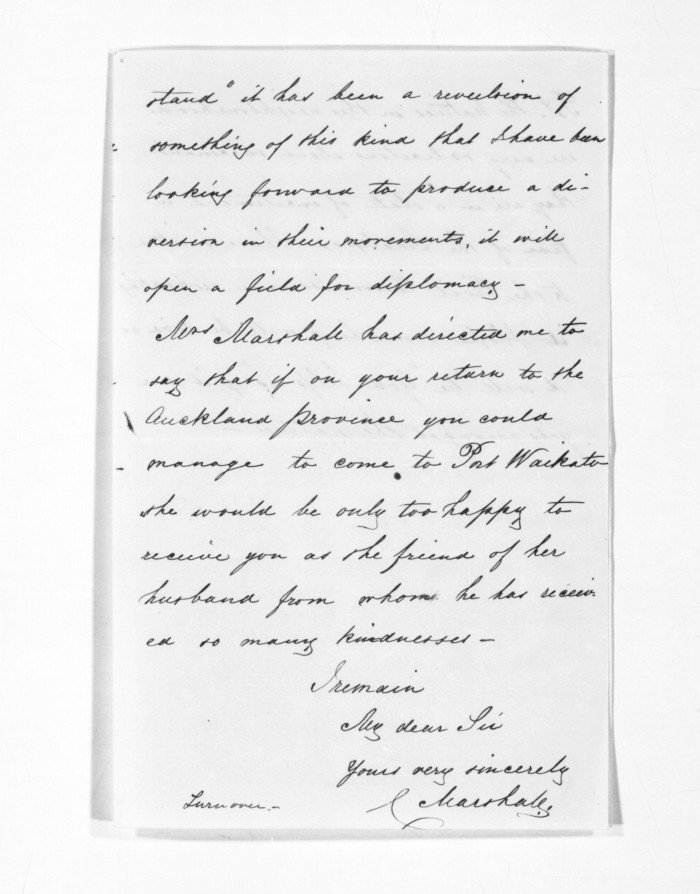 stand" it has been a revulsion of
something of this kind that I have been
looking forward to produce a di-
version in their movements, it will
open a field for diplomacy -
Mrs Marshall has directed me to
say that if on your return to the
Auckland province you could
manage to come to Port Waikato
she would be only too happy to
receive you as the friend of her
husband from whom he has receiv-
ed so many kindnesses -
I remain
My dear Sir
Yours very sincerely
Marshall
Turn over. -